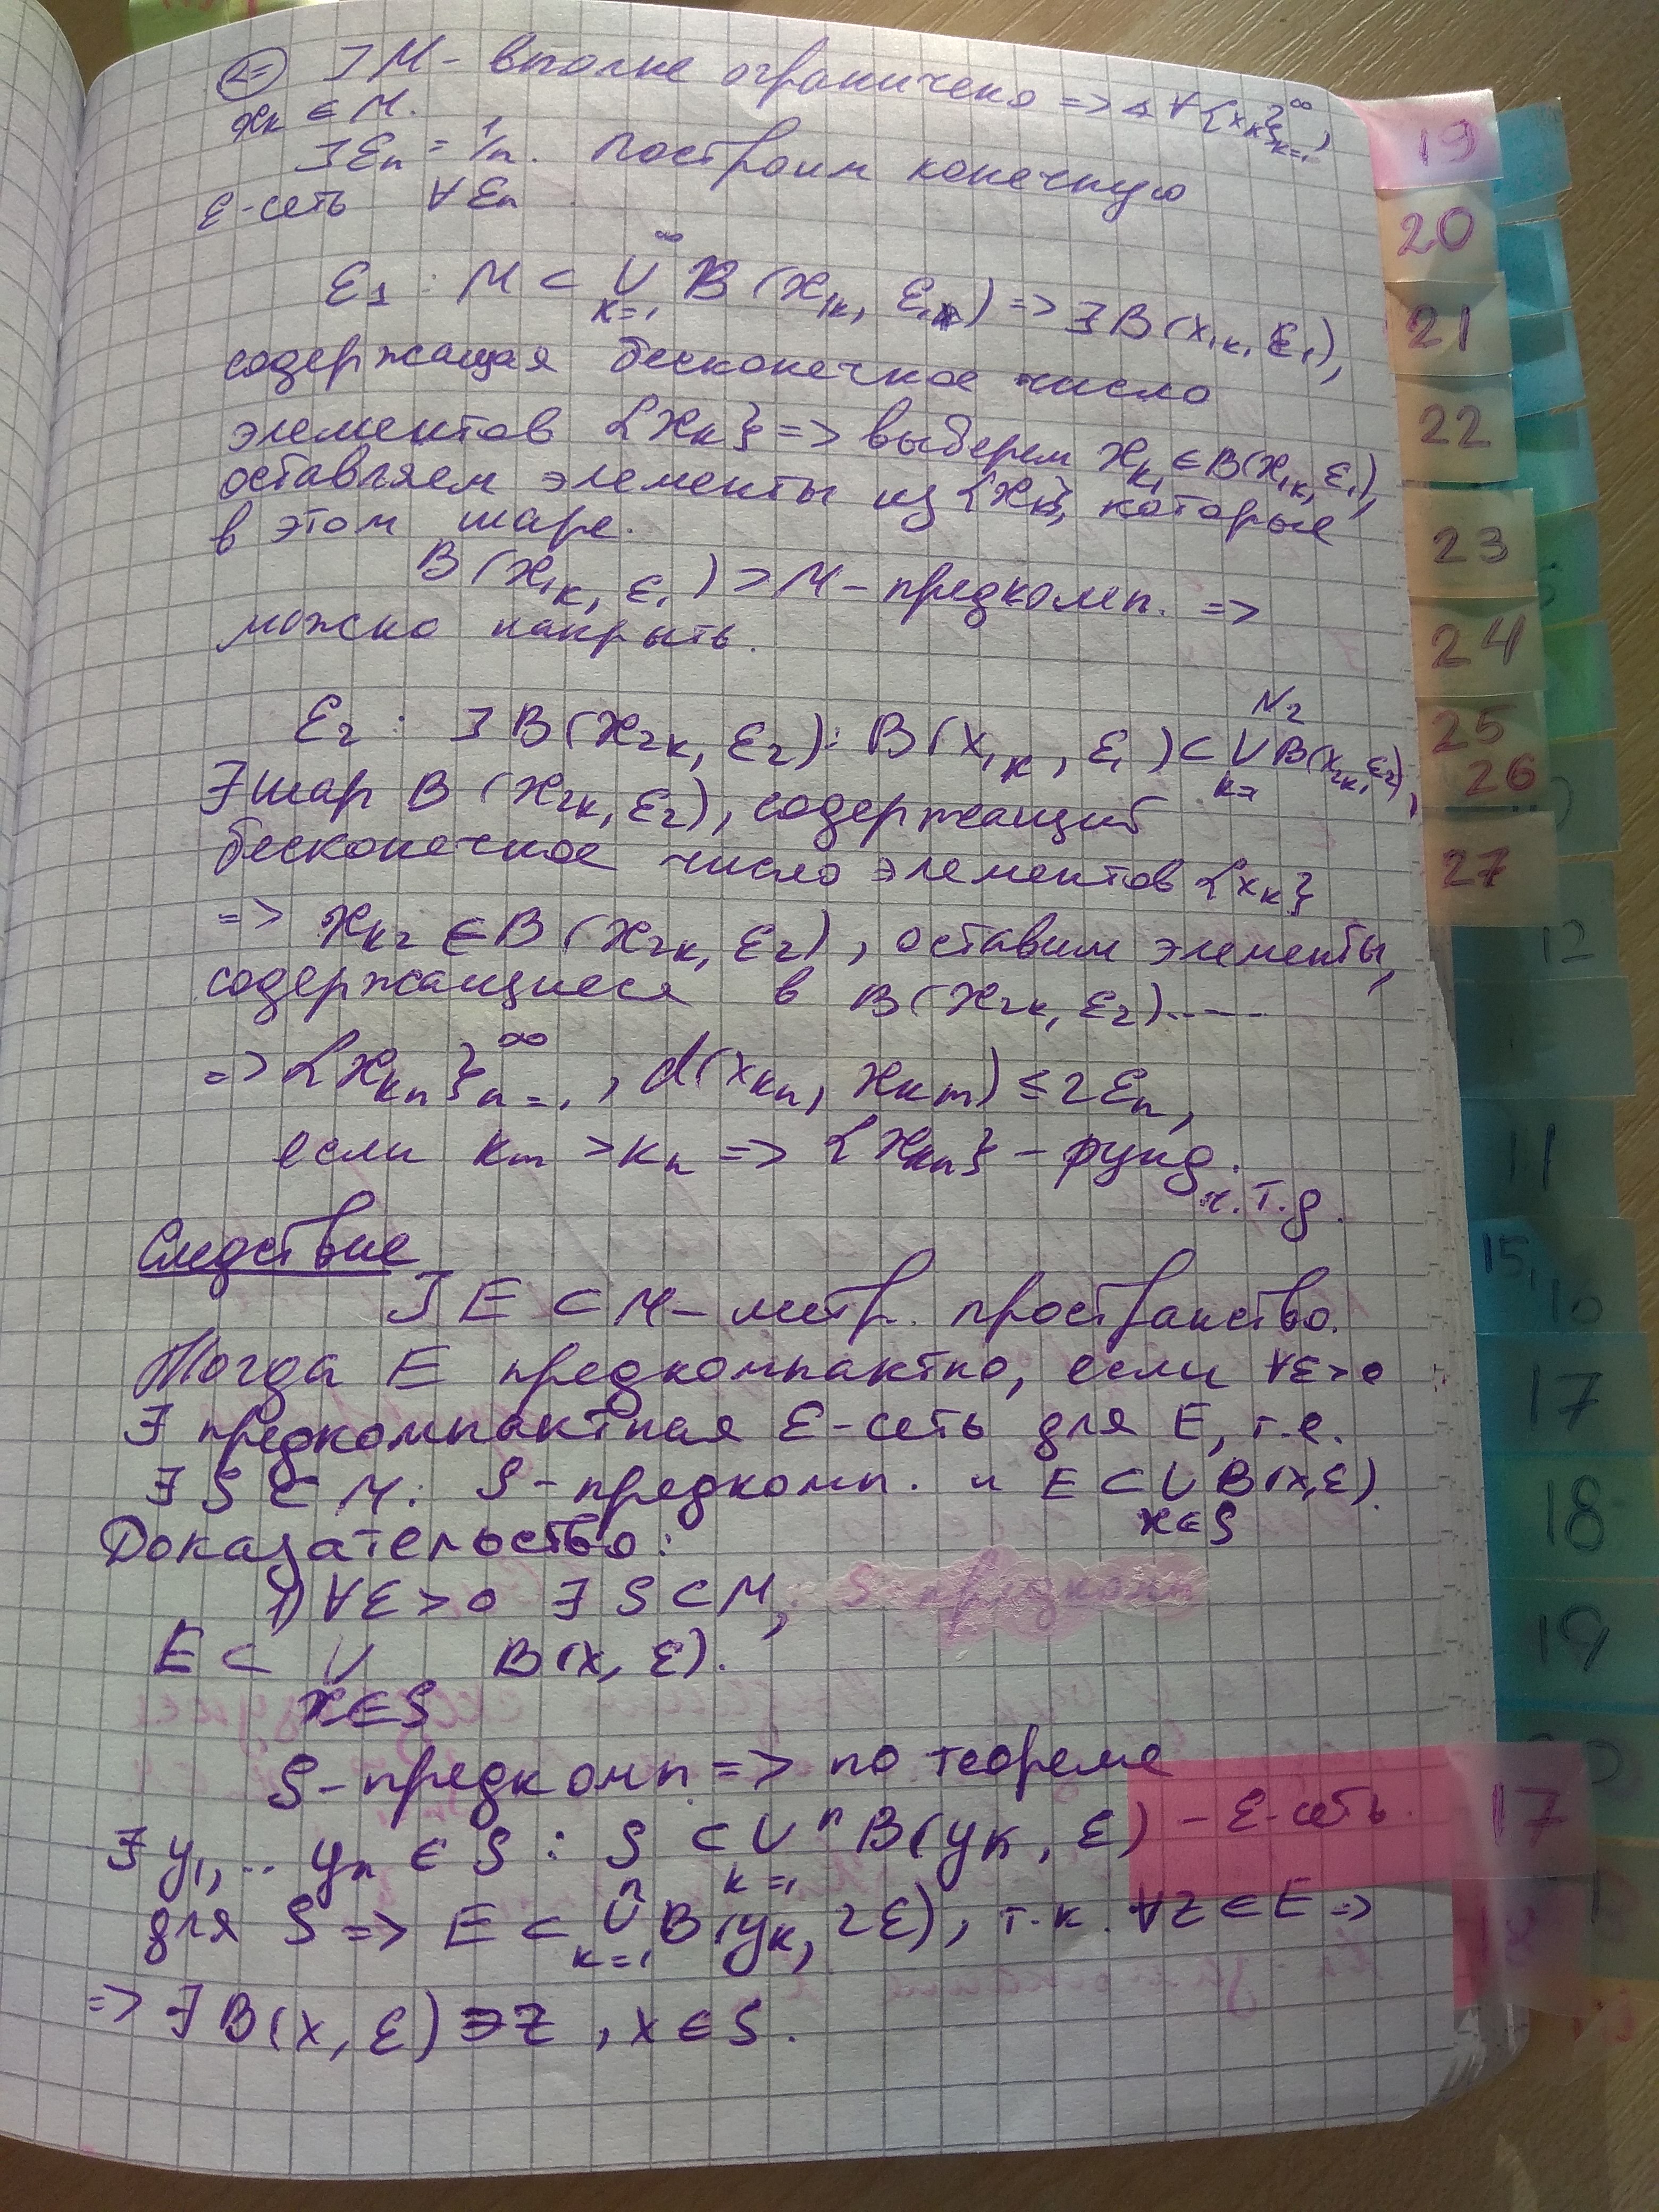 ⇐ ] M - вполне ограничено => ∆ ∀{x_k}_{k=1}^∞,
x_k ∈ M.
] ε_n = 1/n. Построим конечную
ε-сеть ∀ε_n.
ε_1 : M ⊂ ∪_{k=1}^∞ B(x_{1k}, ε_1) => ∃ B(x_{1k}, ε_1),
содержащая бесконечное число
элементов {x_k} => выберем x_{k_1} ∈ B(x_{1k}, ε_1),
оставляем элементы из {x_k}, которые
в этом шаре.
B(x_{1k}, ε_1) > M - предкомп. =>
можно накрыть.
ε_2 : ∃ B(x_{2k}, ε_2): B(x_{1k}, ε_1) ⊂ ∪_{k=1}^{N_2} B(x_{2k}, ε_2),
∃ шар B(x_{2k}, ε_2), содержащий
бесконечное число элементов {x_k}
=> x_{k2} ∈ B(x_{2k}, ε_2), оставим элементы,
содержащиеся в B(x_{2k}, ε_2).....
=> {x_{k_n}}_{n=1}^∞, d(x_{k_n}, x_{k_m}) ≤ 2ε_n,
если k_m > k_n => {x_{k_n}} - фунд.
ч.т.д.
Следствие
] E ⊂ M - метр. пространство.
Тогда E предкомпактно, если ∀ε>0
∃ предкомпактная ε-сеть для E, т.е.
∃ S ⊂ M: S - предкомп. и E ⊂ ∪_{x∈S} B(x,ε).
Доказательство:
1) ∀ε > 0 ∃ S ⊂ M, S - предкомп
E ⊂ ∪_{x∈S} B(x, ε).
S - предкомп => по теореме
∃ y_1, .. y_n ∈ S : S ⊂ ∪_{k=1}^n B(y_k, ε) - ε-сеть
для S => E ⊂ ∪_{k=1}^n B(y_k, 2ε), т.к. ∀z ∈ E =>
=> ∃ B(x, ε) ∋ z, x ∈ S.
19
20
21
22
23
24
25
26
27
12
11
15,
10
17
18
19
17